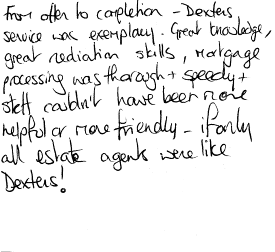 From offer to completion - Dexters
service was exemplary. Great knowledge,
great mediation skills, mortgage
processing was thorough + speedy +
staff couldn't have been more
helpful or more friendly - if only
all estate agents were like
Dexters!